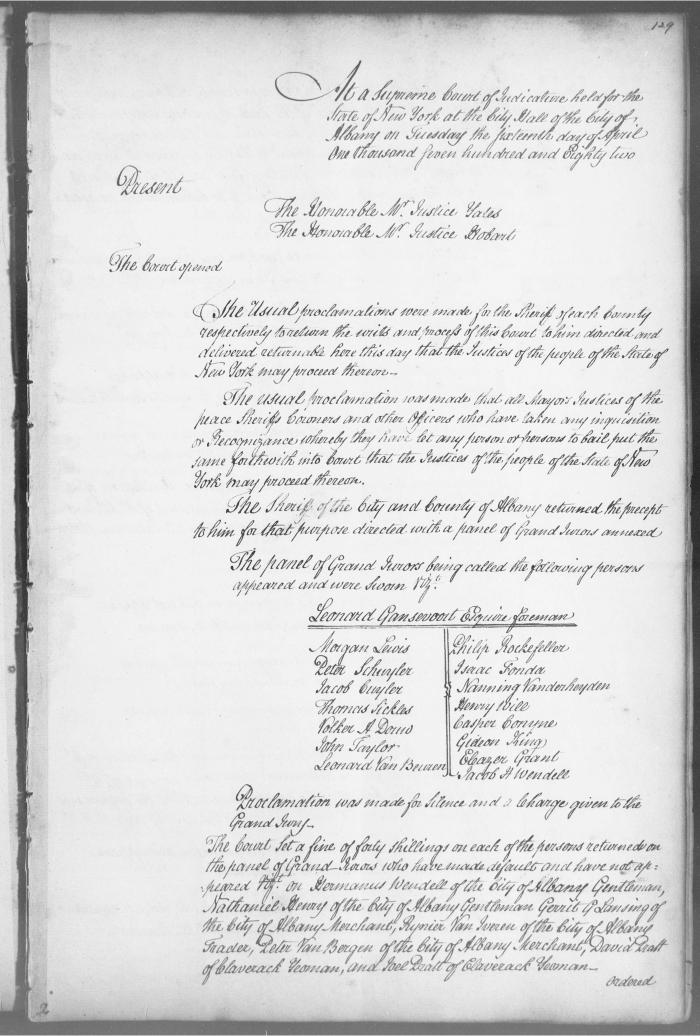 129
At a Supreme Court of Judicature held for the
State of New York at the City Hall of the City of
Albany on Tuesday the sixteenth day of April
One thousand seven hundred and Eighty two
Present
The Honorable Mr. Justice Yates
The Honorable Mr. Justice Hobart
The Court opened
The Usual proclamations were made for the Sheriff of each County
respectively to return the writs and process of this Court to him directed and
delivered returnable here this day that the Justices of the people of the State of
New York may proceed thereon
The usual proclamation was made that all Mayors Justices of the
peace Sheriffs Coroners and other Officers who have taken any inquisition
or Recognizance whereby they have let any person or persons to bail put the
same forthwith into Court that the Justices of the people of the State of New
York may proceed thereon.
The Sheriff of the City and County of Albany returned the precept
to him for that purpose directed with a panel of Grand Jurors annexed
The panel of Grand Jurors being called the following persons
appeared and were sworn Vizt.
Leonard Gansevoort Esquire foreman
Morgan Lewis
Peter Schuyler
Jacob Cuyler
Thomas Sickles
Volker A Douw
John Taylor
Leonard Van Beuren
Philip Rockefeller
Isaac Fonda
Nanning Vanderheyden
Henry Will
Casper Conyne
Gideon King
Eleazer Grant
Jacob H Wendell
Proclamation was made for Silence and a Charge given to the
Grand Jury
The Court Set a fine of forty shillings on each of the persons returned on
the panel of Grand Jurors who have made default and have not ap=
peared Vizt. on Hermanus Wendell of the City of Albany Gentleman,
Nathaniel Henry of the City of Albany Gentleman Gerrit G Lansing of
the City of Albany Merchant, Rynier Van Iveren of the City of Albany
Trader, Peter Van Bergen of the City of Albany Merchant, David Pratt
of Claverack Yeoman, and Joel Pratt of Claverack Yeoman
Ordered
2